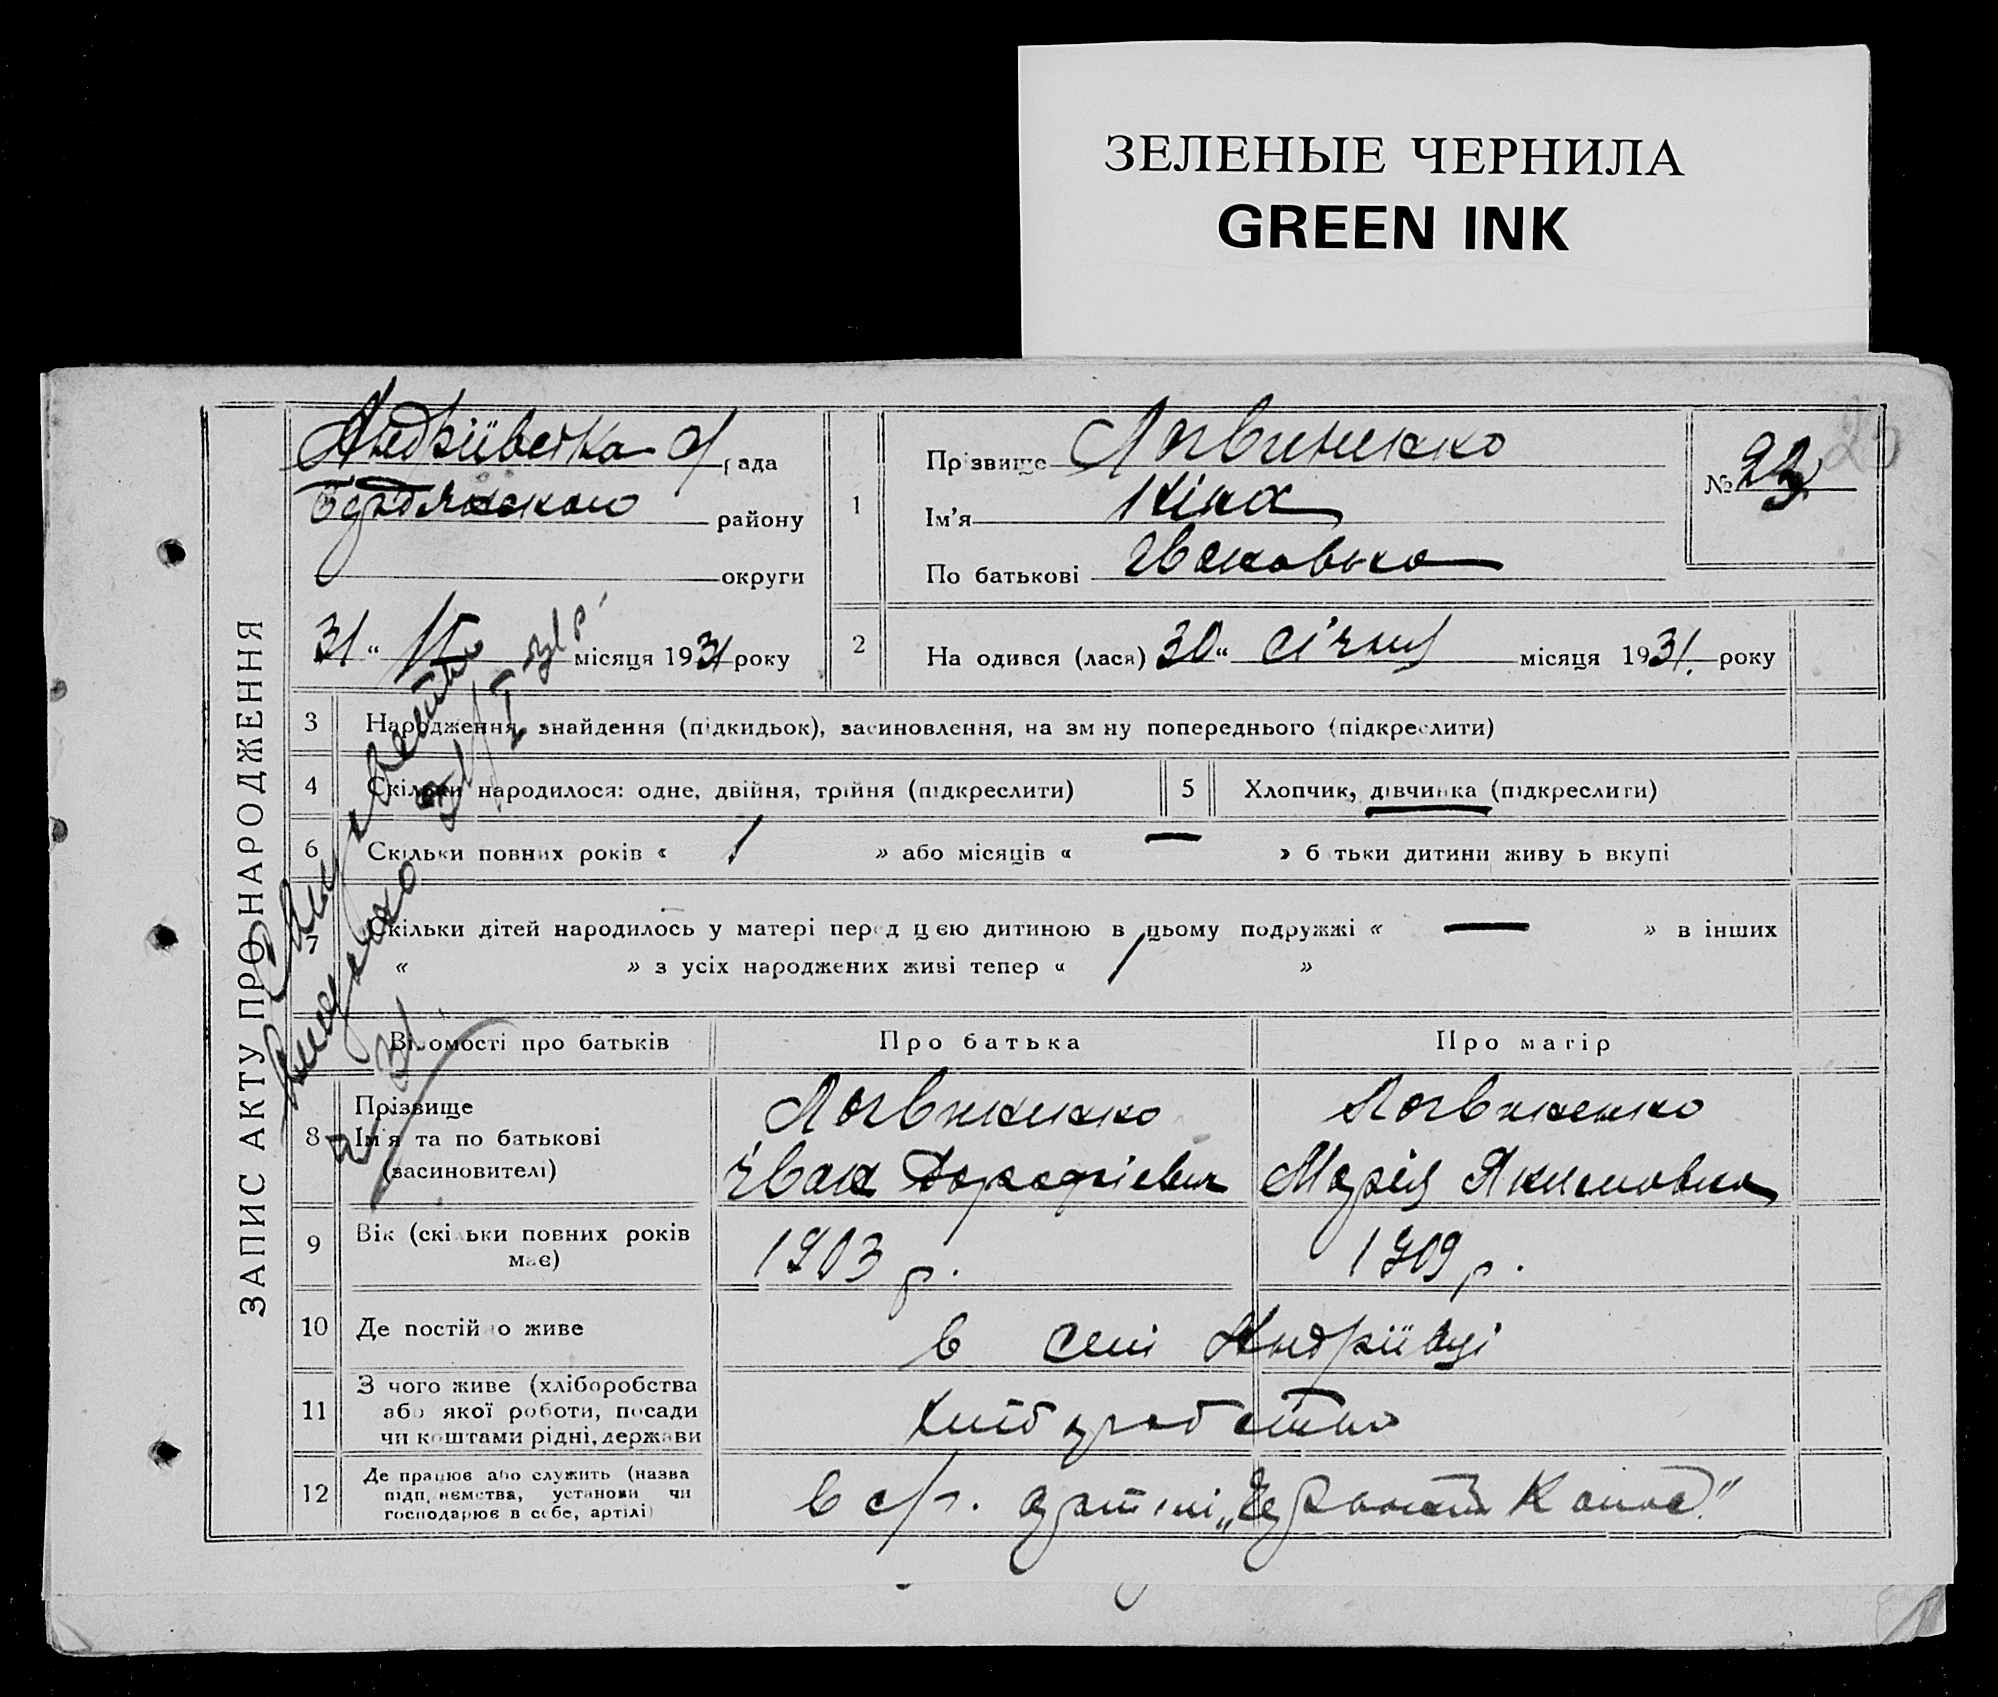 ЗЕЛЕНЫЕ ЧЕРНИЛА
GREEN INK
ЗАПИС АКТУ ПРО НАРОДЖЕННЯ
Андріївська с/рада
Бердянського району
округи
31 " І місяця 1931 року
1
Прізвище Логвиненко
Ім'я Ніна
По батькові Івановна
№ 23
2
На одився (лася) 30 " січня місяця 1931. року
3 Народження, знайдення (підкидьок), засиновлення, на зм ну попереднього (підкреслити)
4 Скільки народилося: одне, двійня, трійня (підкреслити)
5 Хлопчик, дівчинка (підкреслити)
6 Скільки повних років « 1 » або місяців « — » б тьки дитини живу ь вкупі
7 Скільки дітей народилось у матері перед цією дитиною в цьому подружжі « — » в інших
« » з усіх народжених живі тепер « 1 »
Відомості про батьків Про батька Про матір
8 Прізвище Ім'я та по батькові (засиновителі)
Логвиненко
Іван Дорофієвич
Логвиненко
Марія Якимовна
9 Вік (скільки повних років має) 1903 р. 1909 р.
10 Де постійно живе в селі Андріївці
11 З чого живе (хліборобства
або якої роботи, посади
чи коштами рідні, держави
хліборобство
12 Де працює або служить (назва
підп, немства, установи чи
господарює в себе, артілі)
в с/г. артілі „Червоний